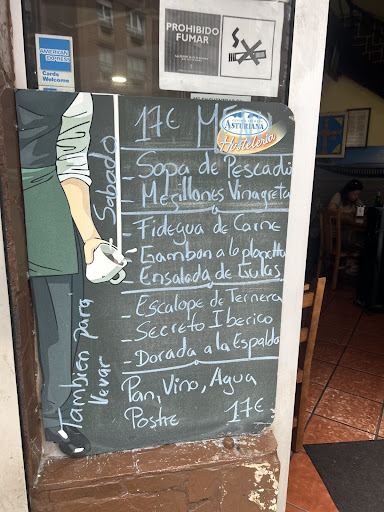 PROHIBIDO
FUMAR
AMERICAN
EXPRESS
Cards
Welcome
17€ M
CENTRAL LECHERA
ASTURIANA
Hostelería
Sabado
- Sopa de Pescado
- Megillones Vinagreta
- Fidegua de Carne
- Gambon a la plancha
- Ensalada de Gulas
- Escalope de Ternera
- Secreto Iberico
- Dorada a la Espalda
Pan, Vino, Agua
Postre 17€
Tambien para
llevar